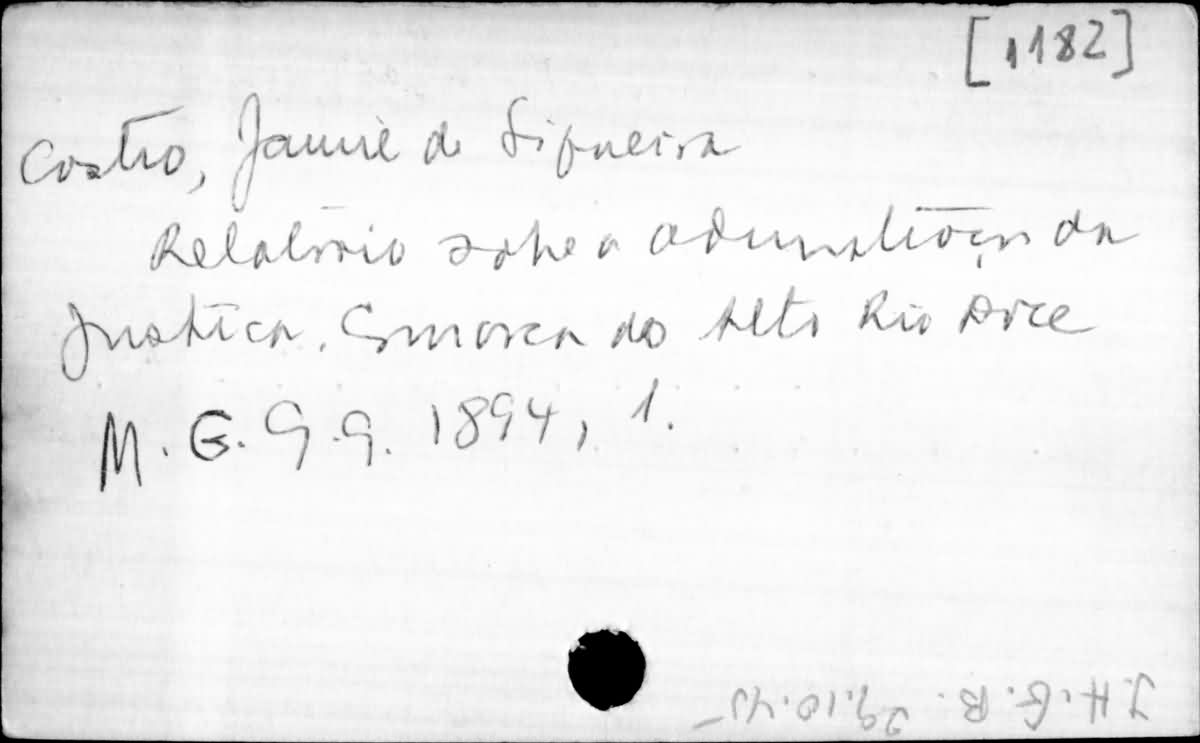 [1182]
Castro, Jayme de Siqueira
Relatório sobre a administração da
Justiça. Comarca do Alto Rio Doce
M. G. G. G. 1894, 1.
I. H. G. B. 29.10.45